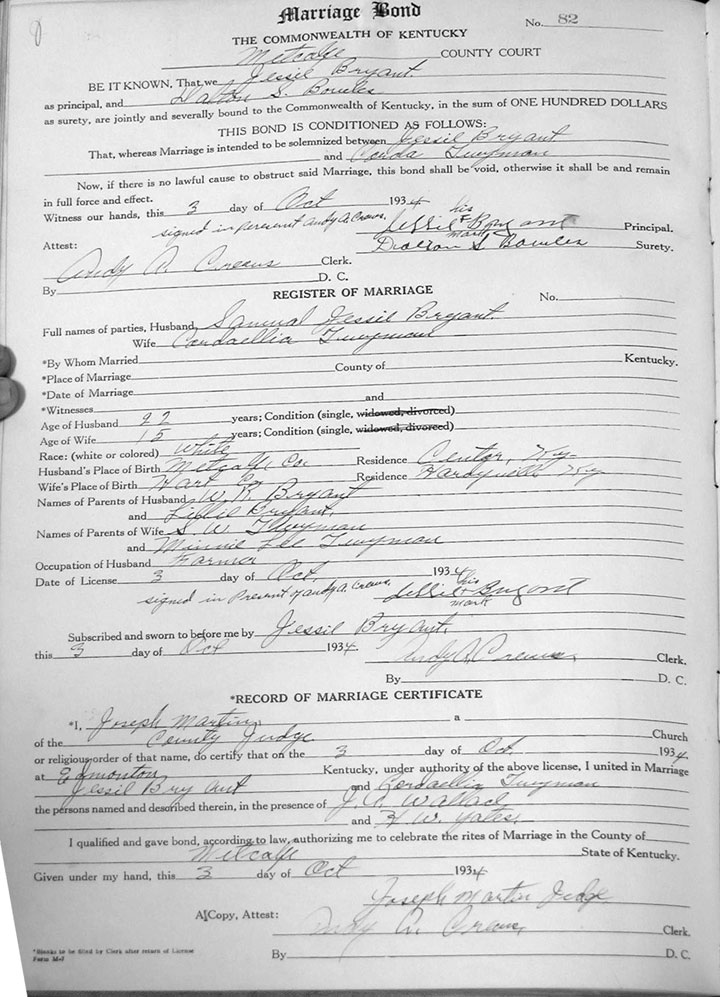 Marriage Bond
No. 82
THE COMMONWEALTH OF KENTUCKY
Metcalfe COUNTY COURT
BE IT KNOWN, That we Jessil Bryant.
as principal, and Dalton S. Bowles
as surety, are jointly and severally bound to the Commonwealth of Kentucky, in the sum of ONE HUNDRED DOLLARS
THIS BOND IS CONDITIONED AS FOLLOWS:
That, whereas Marriage is intended to be solemnized between Jessil Bryant
and Twyman
Now, if there is no lawful cause to obstruct said Marriage, this bond shall be void, otherwise it shall be and remain
in full force and effect.
Witness our hands, this 3 day of Oct 1934
signed in Andy A. Crews. his
Principal.
mark
Attest: S Bowles Surety.
Andy A. Crews Clerk.
By D. C.
REGISTER OF MARRIAGE
No.
Full names of parties, Husband Jessil Bryant.
Wife Cordaellia Twyman
*By Whom Married
*Place of Marriage County of Kentucky.
*Date of Marriage
*Witnesses and
Age of Husband 22 years; Condition (single, widowed, divorced)
Age of Wife 15 years; Condition (single, widowed, divorced)
Race: (white or colored) White
Husband's Place of Birth Metcalfe Co. Residence Center, Ky-
Wife's Place of Birth Hart Co Residence Hardyville Ky
Names of Parents of Husband W. R. Bryant
and Lillie Bryant,
Names of Parents of Wife S. W. Twyman
and Minnie Lee Twyman
Occupation of Husband Farmer
Date of License 3 day of Oct. 1934
signed in Present of Andy A. Crews. his
mark
Subscribed and sworn to before me by Jessil Bryant.
this 3 day of Oct 1934.
Andy A. Crews, Clerk.
By D. C.
*RECORD OF MARRIAGE CERTIFICATE
*I, Joseph Martin, a
of the County Judge Church
or religious order of that name, do certify that on the 3 day of Oct 1934
at Edmonton Kentucky, under authority of the above license, I united in Marriage
Jessil Bryant and Cordaellia Twyman
the persons named and described therein, in the presence of
and H. W. Yates,
I qualified and gave bond, according to law, authorizing me to celebrate the rites of Marriage in the County of
Metcalfe State of Kentucky.
Given under my hand, this 3 day of Oct 1934
Joseph Martin Judge
A Copy, Attest:
Andy A. Crews, Clerk.
*Blanks to be filled by Clerk after return of License
By D. C.
Form M-1